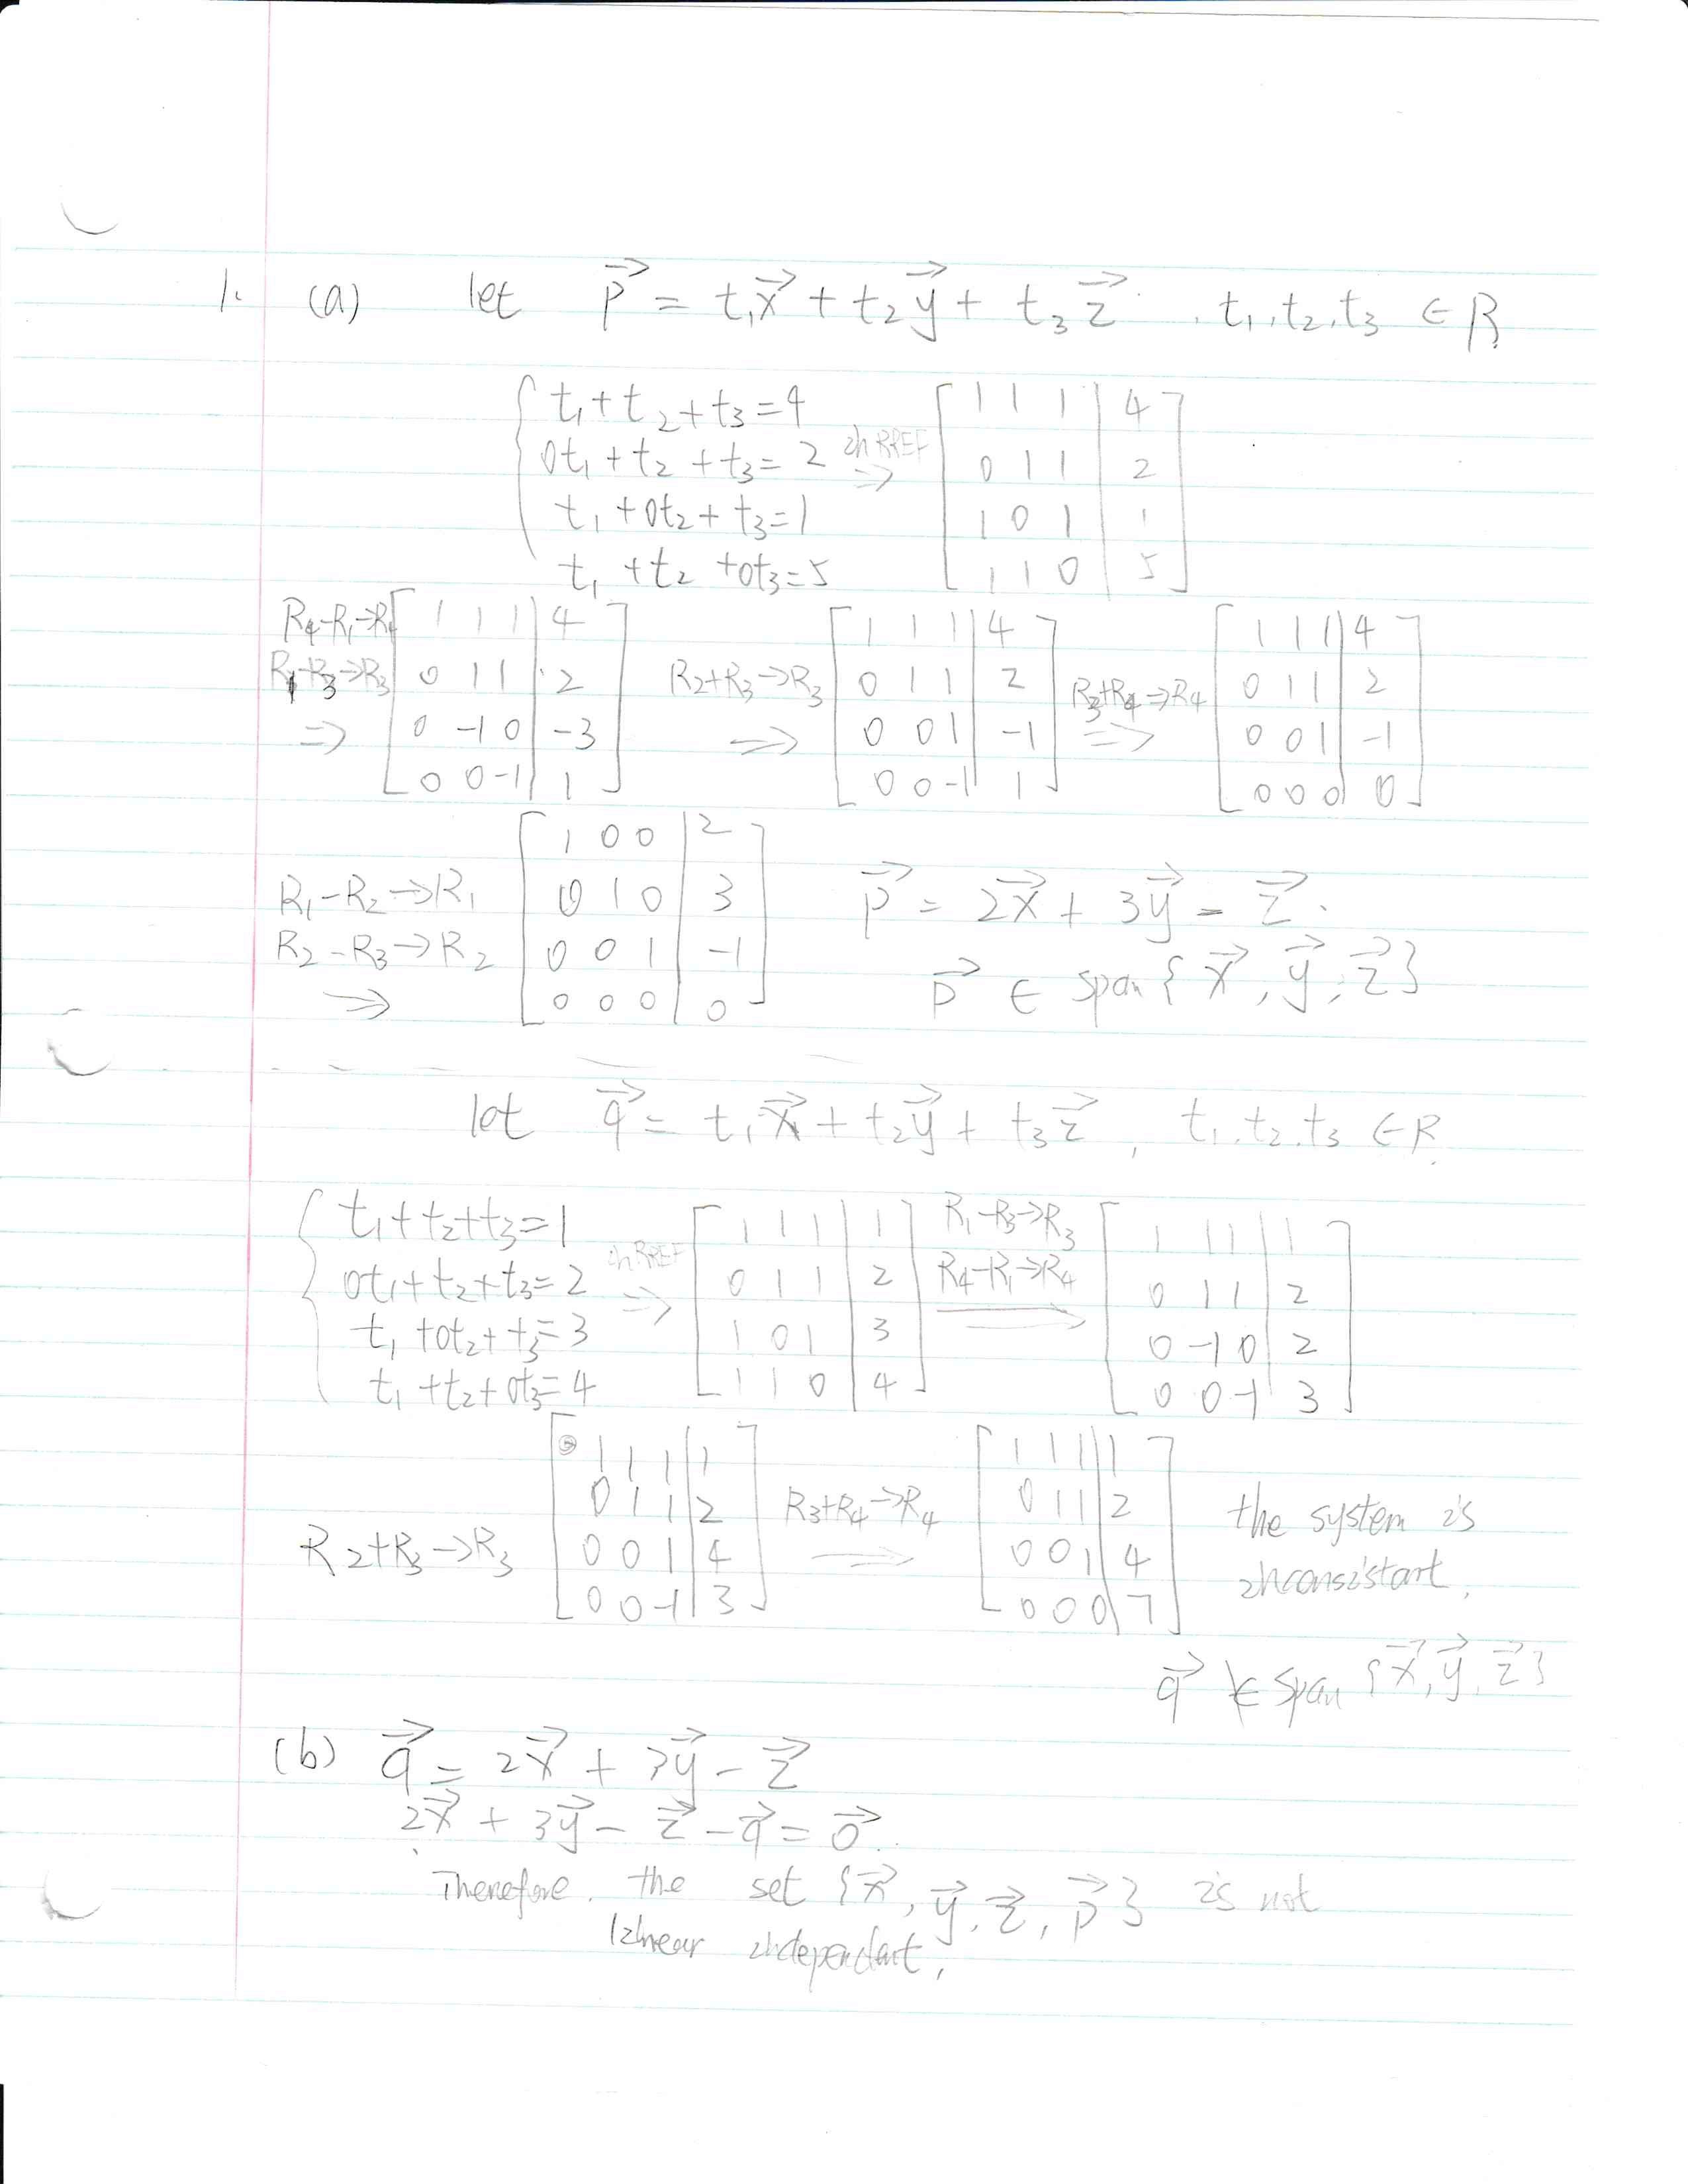 1. (a) let p⃗ = t₁x⃗ + t₂y⃗ + t₃z⃗ . t₁,t₂,t₃ ∈ R
{ t₁+t₂+t₃=4
0t₁+t₂+t₃=2
t₁+0t₂+t₃=1
t₁+t₂+0t₃=5
in RREF ⇒
[ 1 1 1 | 4
0 1 1 | 2
1 0 1 | 1
1 1 0 | 5 ]
R₄-R₁→R₄
R₁-R₃→R₃
⇒
[ 1 1 1 | 4
0 1 1 | 2
0 -1 0 | -3
0 0 -1 | 1 ]
R₂+R₃→R₃ ⇒
[ 1 1 1 | 4
0 1 1 | 2
0 0 1 | -1
0 0 -1 | 1 ]
R₃+R₄→R₄ ⇒
[ 1 1 1 | 4
0 1 1 | 2
0 0 1 | -1
0 0 0 | 0 ]
R₁-R₂→R₁
R₂-R₃→R₂
⇒
[ 1 0 0 | 2
0 1 0 | 3
0 0 1 | -1
0 0 0 | 0 ]
p⃗ = 2x⃗ + 3y⃗ - z⃗.
p⃗ ∈ span{x⃗, y⃗, z⃗}
let q⃗ = t₁x⃗ + t₂y⃗ + t₃z⃗, t₁,t₂,t₃ ∈ R
{ t₁+t₂+t₃=1
0t₁+t₂+t₃=2
t₁+0t₂+t₃=3
t₁+t₂+0t₃=4
in RREF ⇒
[ 1 1 1 | 1
0 1 1 | 2
1 0 1 | 3
1 1 0 | 4 ]
R₁-R₃→R₃
R₄-R₁→R₄
⇒
[ 1 1 1 | 1
0 1 1 | 2
0 -1 0 | 2
0 0 -1 | 3 ]
R₂+R₃→R₃
[ 1 1 1 | 1
0 1 1 | 2
0 0 1 | 4
0 0 -1 | 3 ]
R₃+R₄→R₄ ⇒
[ 1 1 1 | 1
0 1 1 | 2
0 0 1 | 4
0 0 0 | 7 ]
the system is
inconsistant.
q⃗ ∉ span{x⃗, y⃗, z⃗}
(b) q⃗ = 2x⃗ + 3y⃗ - z⃗
2x⃗ + 3y⃗ - z⃗ - q⃗ = 0⃗.
Therefore. the set {x⃗, y⃗, z⃗, p⃗} is not
linear independant.